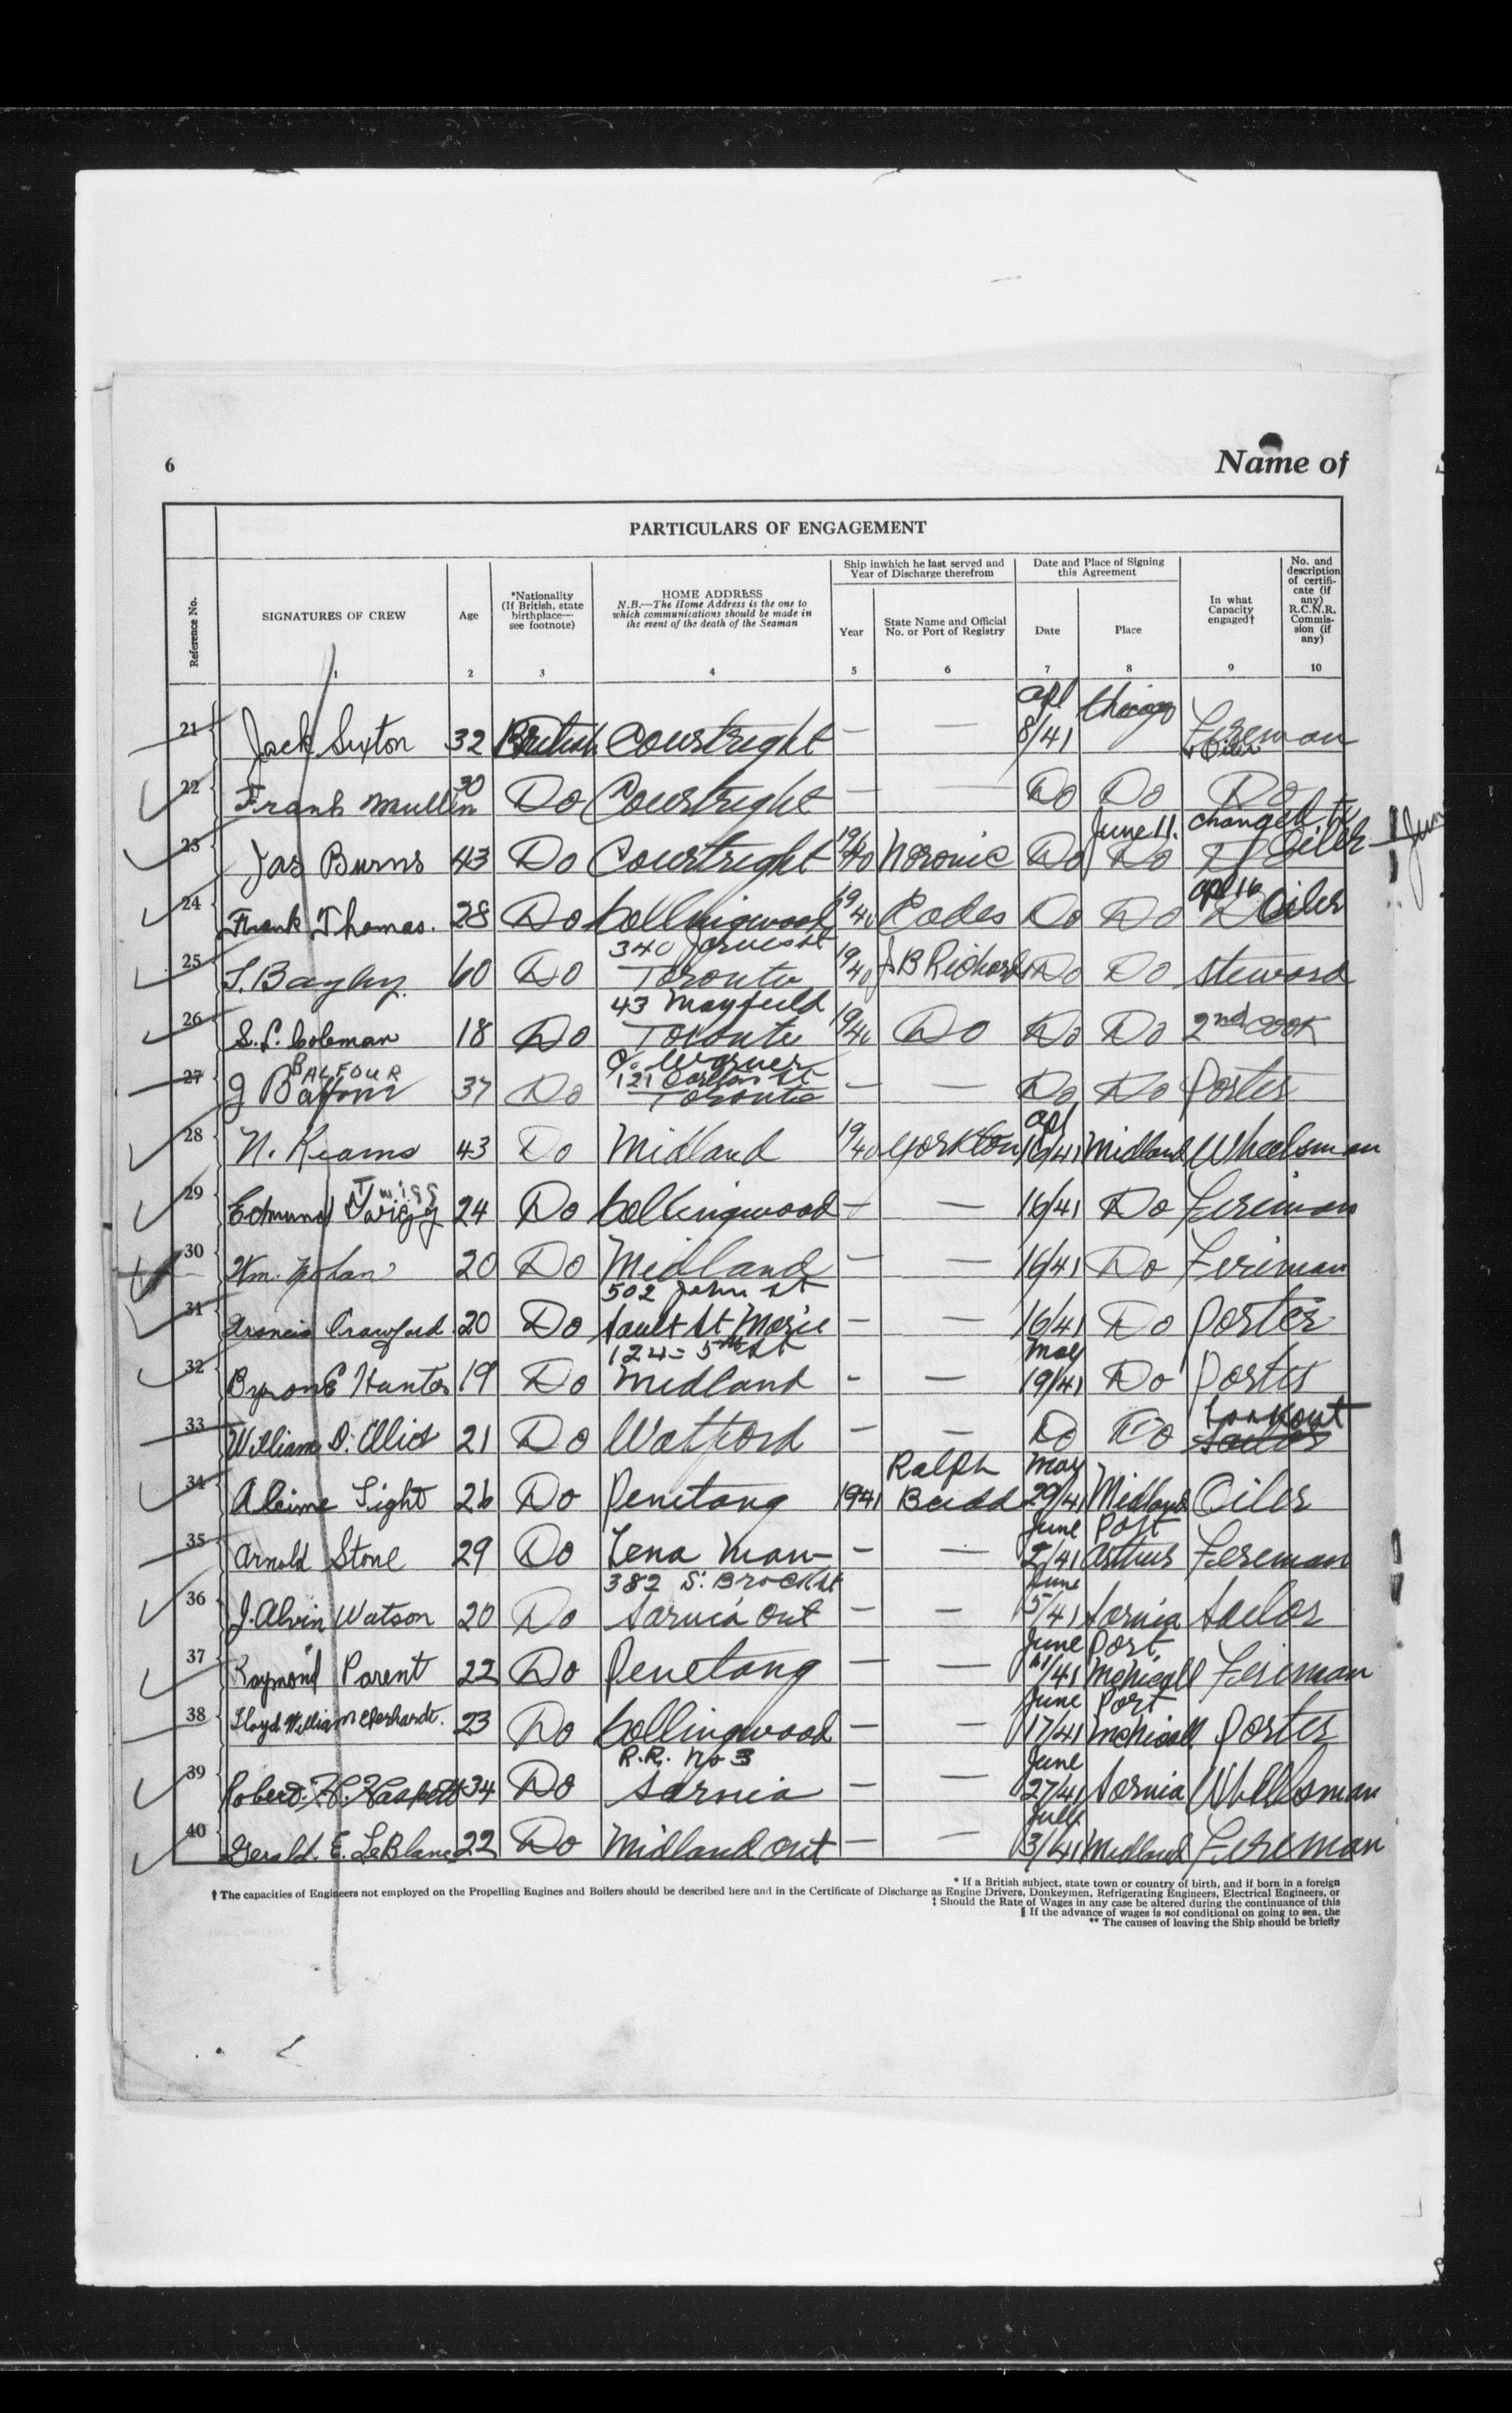 6
Name of
PARTICULARS OF ENGAGEMENT
Reference No.
SIGNATURES OF CREW
Age
*Nationality
(If British, state
birthplace—
see footnote)
HOME ADDRESS
N.B.—The Home Address is the one to
which communications should be made in
the event of the death of the Seaman
Ship in which he last served and
Year of Discharge therefrom
Year
State Name and Official
No. or Port of Registry
Date and Place of Signing
this Agreement
Date
Place
In what
Capacity
engaged†
No. and
description
of certifi-
cate (if
any)
R.C.N.R.
Commis-
sion (if
any)
1 2 3 4 5 6 7 8 9 10
21 Jack Sixton 32 British Courtright — — Apl 8/41 Chicago Fireman
+ Oiler
22 Frank Mullin 30 Do Courtright — — Do Do Do
June 11. changed to
23 Jas Burns 43 Do Courtright 1940 Noronic Do Do Oiler
Apl 16
24 Frank Thomas. 28 Do Collingwood 1940 Do Do Oiler
340 Jarvis St
25 Bagley 60 Do Toronto 1940 J B Richards Do Do Steward
43 Mayfield
26 S. P. Coleman 18 Do Toronto 1940 Do Do Do 2nd Cook
BALFOUR
c/o Warner
121 Carlton St
27 J Balfour 37 Do Toronto — — Do Do Porter
28 N. Reams 43 Do Midland 1940 Yorkton Apl 16/41 Midland Wheelsman
Twigg
29 Edmund Twigg 24 Do Collingwood — — 16/41 Do Fireman
30 Wm. Nolan 20 Do Midland — — 16/41 Do Fireman
502 John St
31 Francis Crawford 20 Do Sault St Marie — — 16/41 Do Porter
124 - 5th St
32 Byron E Hunter 19 Do Midland - — May 19/41 Do Porter
Lookout
33 William D. Elliot 21 Do Watford — — Do Do Sailor
34 Alcime Light 26 Do Penetang 1941 Ralph Budd May 29/41 Midland Oiler
35 Arnold Stone 29 Do — — June 2/41 Port Arthur Fireman
382 S. Brock St
36 J. Alvin Watson 20 Do Sarnia Ont — — June 5/41 Sarnia Sailor
37 Raymond Parent 22 Do Penetang — — June 11/41 Port McNicoll Fireman
38 Lloyd William Eberhardt. 23 Do Collingwood — — June 17/41 Port McNicoll Porter
R.R. No 3
39 Robert H. Haskett 34 Do Sarnia — — June 27/41 Sarnia Wheelsman
40 Gerald. E. LeBlanc 22 Do Midland Ont — — July 3/41 Midland Fireman
* If a British subject, state town or country of birth, and if born in a foreign
† The capacities of Engineers not employed on the Propelling Engines and Boilers should be described here and in the Certificate of Discharge as Engine Drivers, Donkeymen, Refrigerating Engineers, Electrical Engineers, or
‡ Should the Rate of Wages in any case be altered during the continuance of this
‖ If the advance of wages is not conditional on going to sea, the
** The causes of leaving the Ship should be briefly